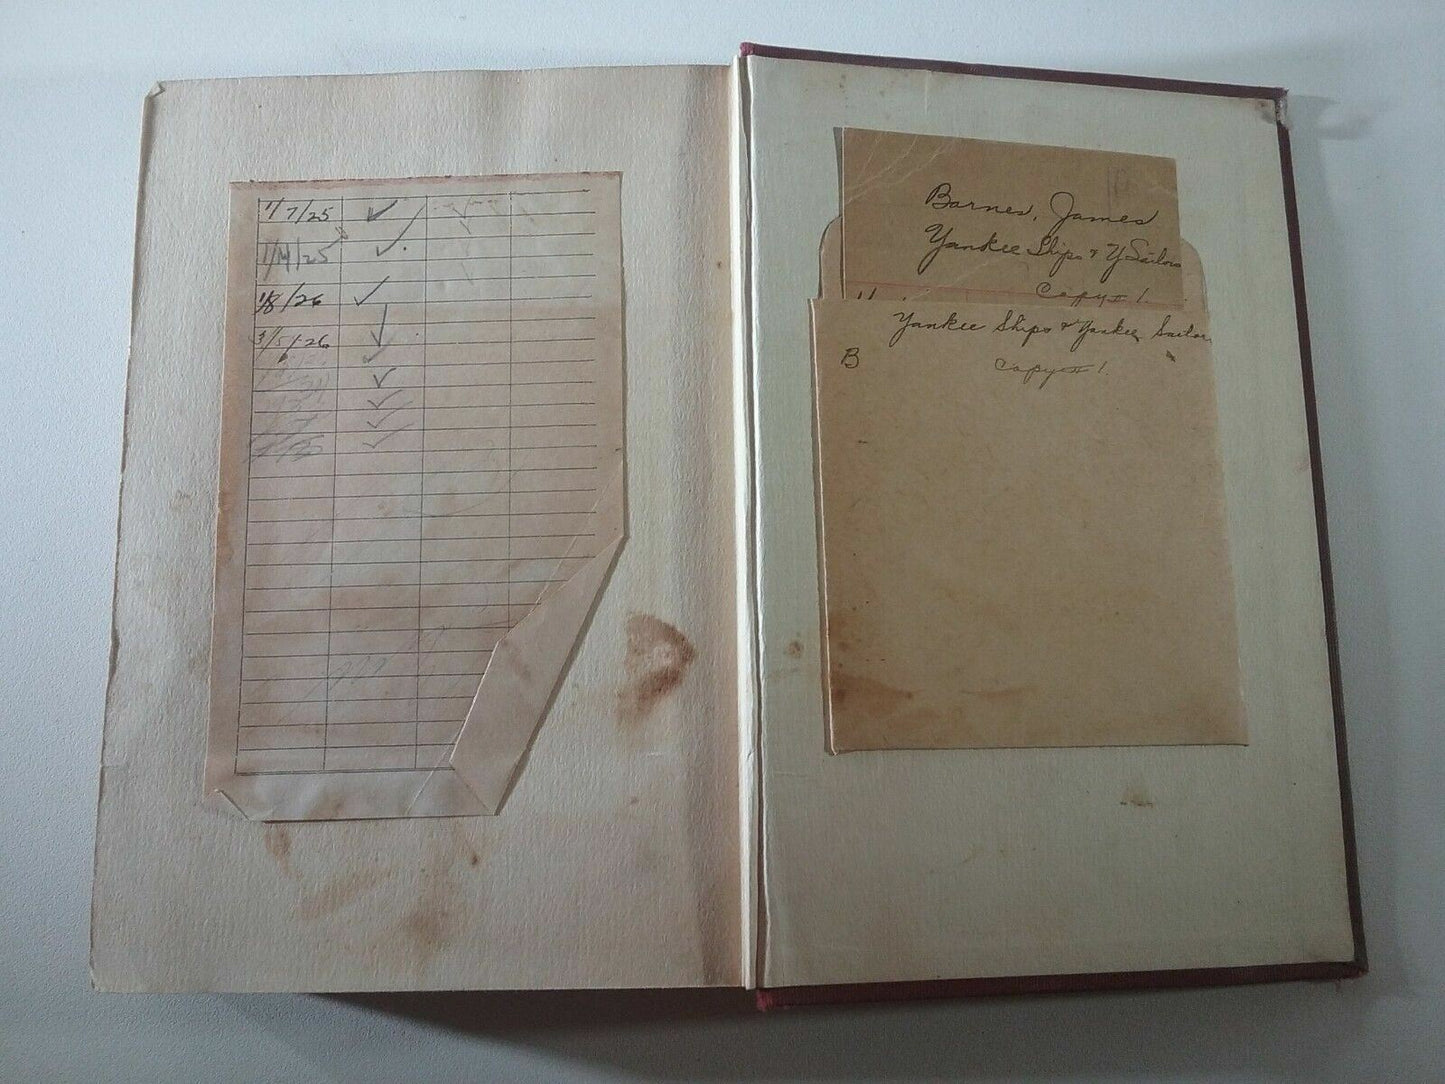 1/7/25
1/14/25
1/8/26
3/5/26
Barnes, James
Yankee Ships & Y Sailors
Copy # 1.
Yankee Ships & Yankee Sailor
B
Copy # 1.